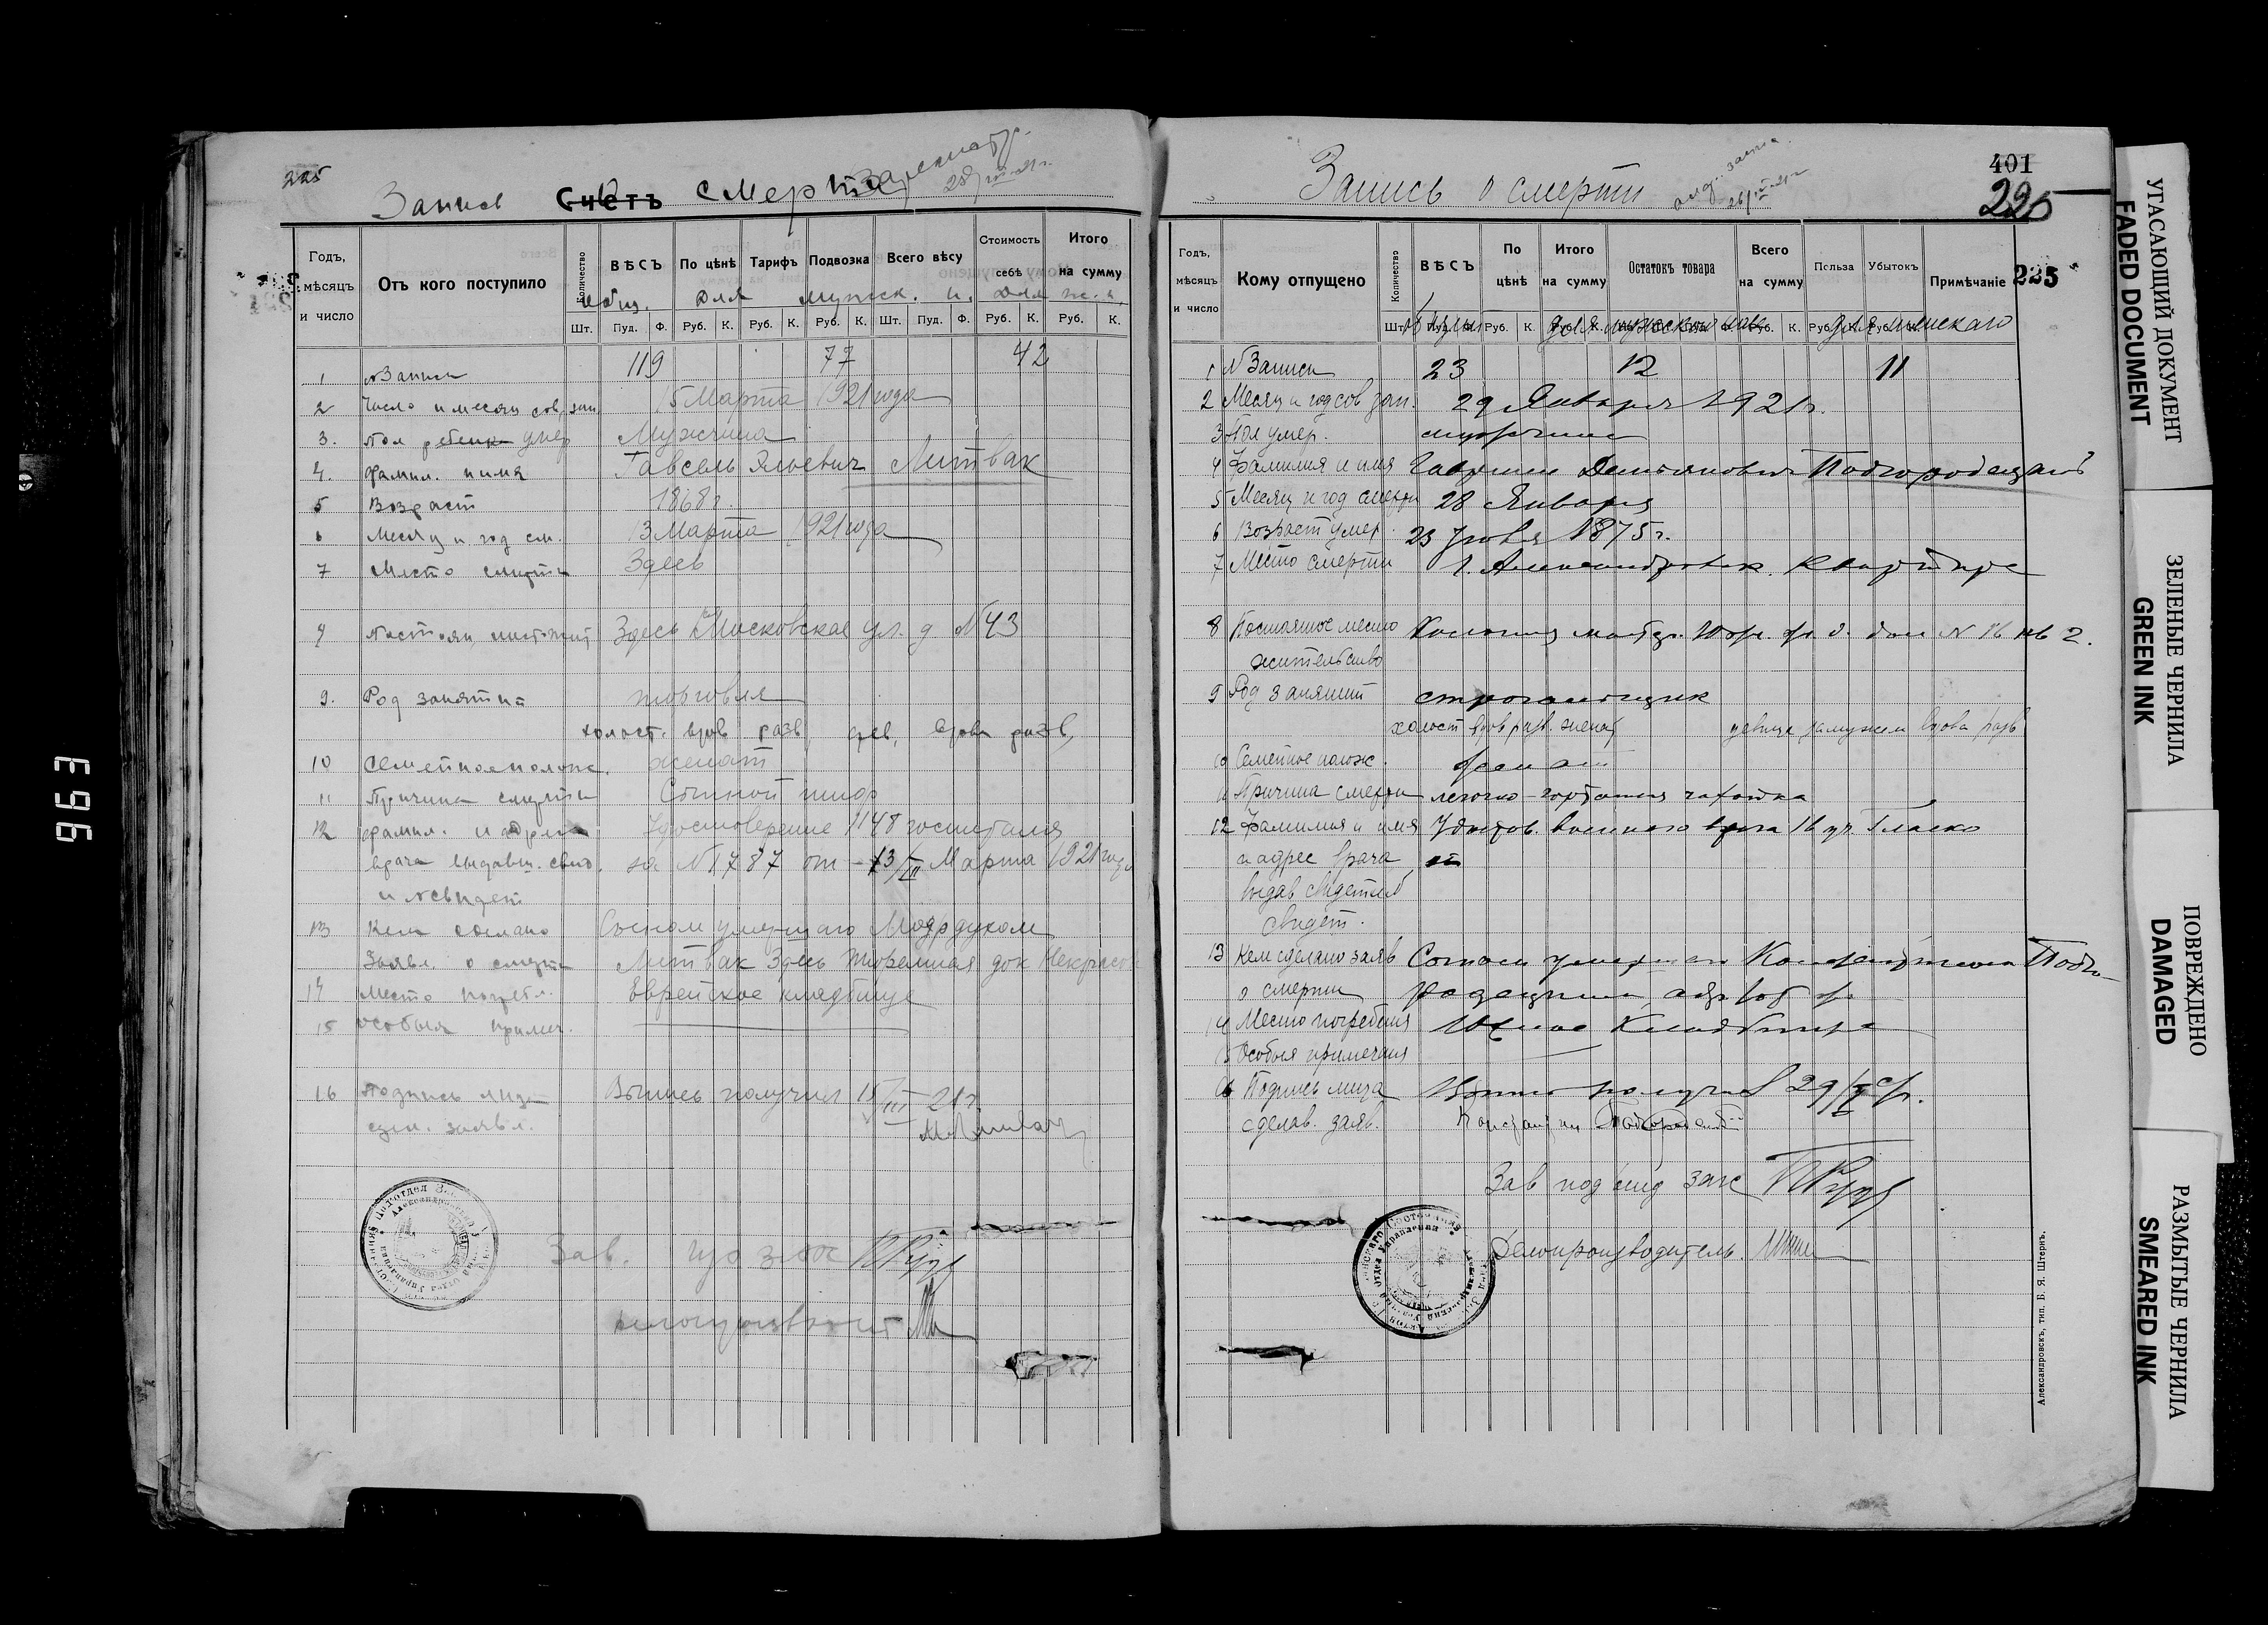 963
225
Запись Счетъ смерти
28/III-21 г.
Годъ, мѣсяцъ и число
Отъ кого поступило
Количество
ВѢСЪ
По цѣнѣ
Тарифъ
Подвозка
Всего вѣсу
Стоимость себѣ
Итого на сумму
общ. для мужск. п. для ж. п.
Шт. Пуд. Ф. Руб. К. Руб. К. Руб. К. Шт. Пуд. Ф. Руб. К. Руб. К.
1 № Записи 119 77 42
2 Число и месяц сов. зап. 15 Марта 1921 года
3. Пол ребенка умер Мужчина
4. Фамил. и имя Гавсель Ялевич Литвак
5 Возраст 1868 г.
6 Месяц и год см. 13 Марта 1921 года
7 Место смерти Здесь
Постоян. мест. жит. Здесь Московская ул. д № 43
9. Род занятия торговля
холост. вдов разв. дев. вдова разв.
10 Семейное полож. женат
11 Причина смерти Сыпной тиф
12 Фамил. и адрес Удостоверение 1148 госпиталя
врача выдавш. свид. за № 1787 от 13/III Марта 1921 года
и № свидет
13 Кем сделано Сыном умершаго Мордухом
Заявл. о смерти Литвак Здесь Тюремная дом Некрасова
14 Место погребл. Еврейское кладбище
15 особыя примеч.
16 Подпись лица Выпись получил 15/III 21 г.
сдел. заявл. М Литвак
Зав. п/о ЗАГС
401
225
Запись о смерти
Годъ, мѣсяцъ и число
Кому отпущено
Количество
ВѢСЪ
По цѣнѣ
Итого на сумму
Остатокъ товара
Всего на сумму
Польза
Убытокъ
Примѣчаніе
225
общий для мужского пола для женскаго
1 № Записи 23 12 11
2 Месяц и год сов зап. 29 Января 1921 г.
3 Пол умер. мужчина
4 Фамилия и имя Гавриил Демьянович Подгородецкий
5 Месяц и год смерти 28 Января
6 Возраст умер. 23 1875 г.
7 Место смерти г. Александровск. Квартира
8 Постоянное место Колония Южн. ж. д. дом № 16 кв 2.
жительство
9 Род занятий строгальщик
холост вдов разв. женат девица замужем вдова разв
10 Семейное полож. женат
11 Причина смерти легочно-гортанная чахотка
12 Фамилия и имя Удостов. военного врача 16 уч.
и адрес врача
выдав
свидет.
13 Кем сделано заяв Сыном умершаго Константином Подго-
о смерти родецким
14 Место погребения Южное Кладбище
15 Особыя примечания
16 Подпись лица Выпись получил 29/I с/г.
сделав. заяв. Константин Подгородецкий
Зав под отд загс
Делопроизводитель
Александровскъ, тип. Б. Я. Штернъ.
УГАСАЮЩИЙ ДОКУМЕНТ
FADED DOCUMENT
ЗЕЛЕНЫЕ ЧЕРНИЛА
GREEN INK
ПОВРЕЖДЕНО
DAMAGED
РАЗМЫТЫЕ ЧЕРНИЛА
SMEARED INK